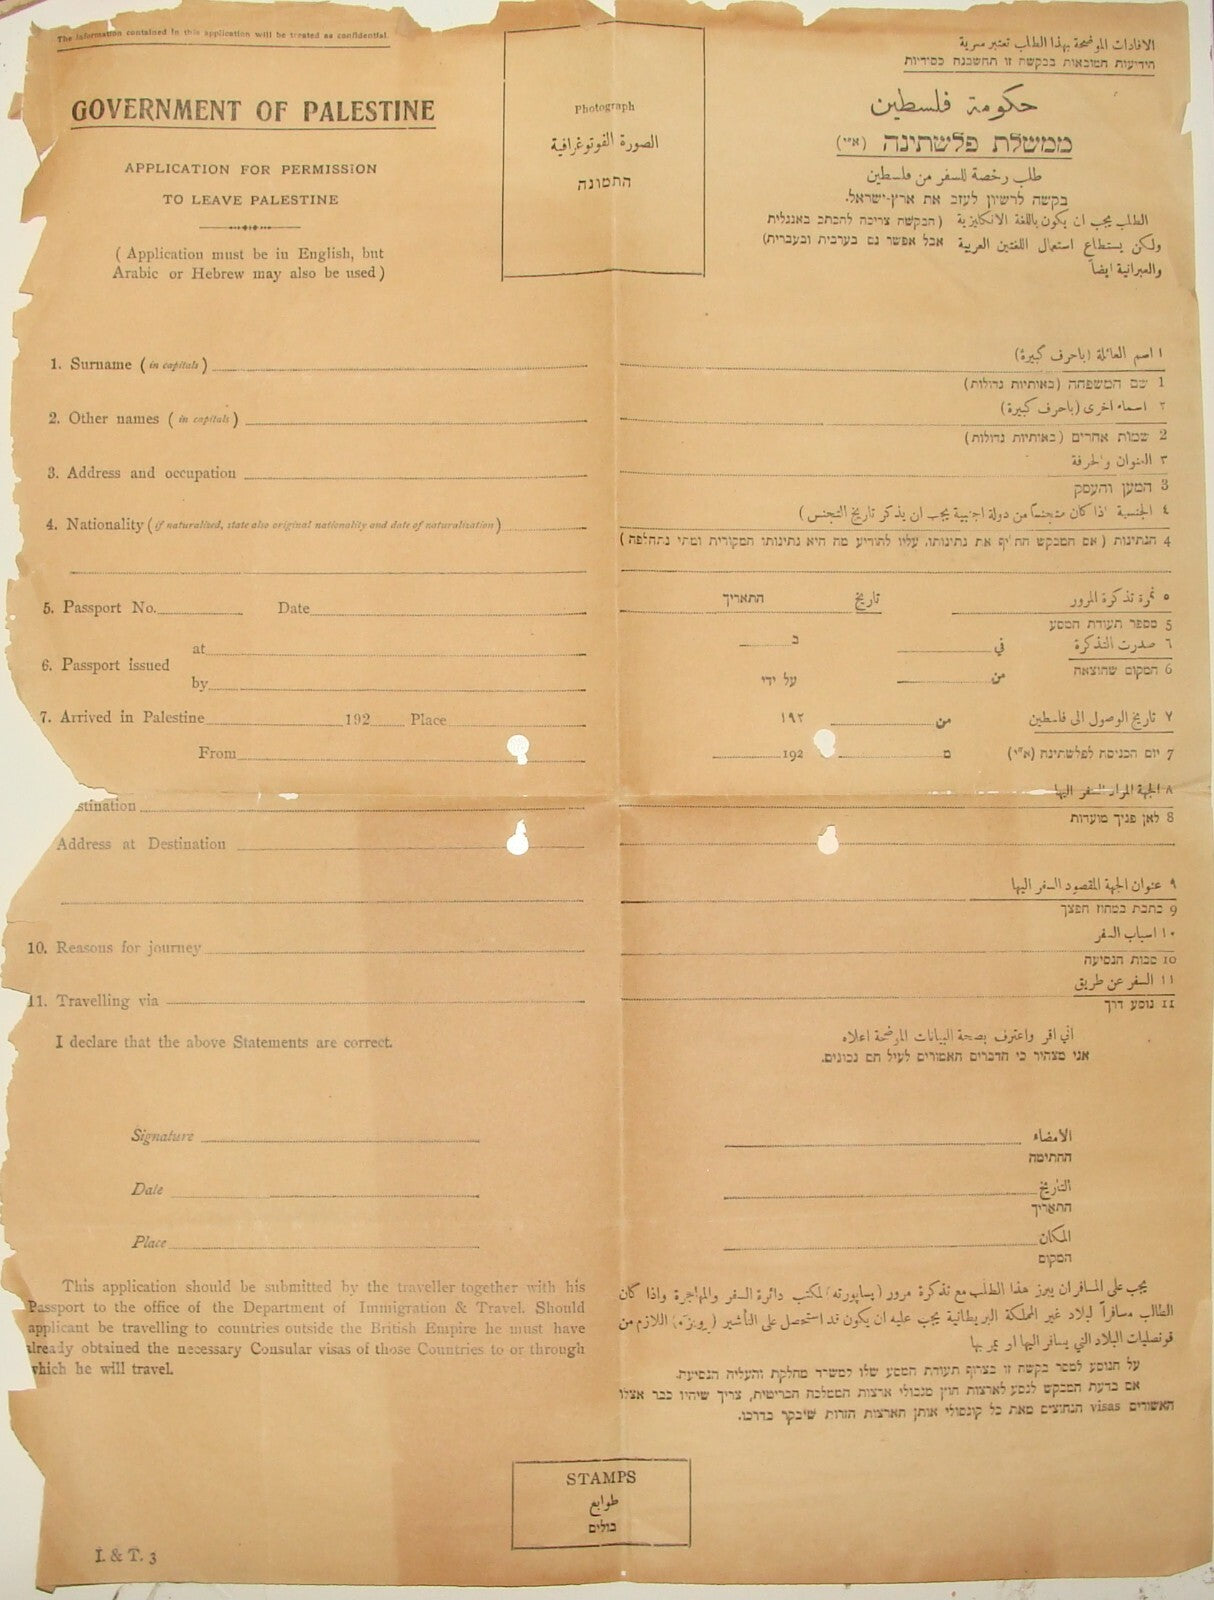 The information contained in this application will be treated as confidential.
GOVERNMENT OF PALESTINE
APPLICATION FOR PERMISSION
TO LEAVE PALESTINE
( Application must be in English, but
Arabic or Hebrew may also be used )
Photograph
الصورة الفوتوغرافية
התמונה
الافادات الموضحة بهذا الطلب تعتبر سرية
הידיעות המובאות בבקשה זו תחשבנה כסודיות
حكومة فلسطين
ממשלת פלשתינה (א״י)
طلب رخصة للسفر من فلسطين
בקשה לרשיון לעזב את ארץ-ישראל.
الطلب يجب ان يكون باللغة الانكليزية
ولكن يستطاع استعمال اللغتين العربية
والعبرانية ايضاً
(הבקשה צריכה להכתב באנגלית
אבל אפשר גם בערבית ובעברית)
1. Surname ( in capitals )
2. Other names ( in capitals )
3. Address and occupation
4. Nationality ( if naturalised, state also original nationality and date of naturalization )
5. Passport No. Date
6. Passport issued
at
by
7. Arrived in Palestine 192 Place
From
stination
Address at Destination
10. Reasons for journey
11. Travelling via
I declare that the above Statements are correct.
Signature
Date
Place
١ اسم العائلة (باحرف كبيرة)
1 שם המשפחה (באותיות גדולות)
٢ اسماء اخرى (باحرف كبيرة)
2 שמות אחרים (באותיות גדולות)
٣ العنوان والحرفة
3 המען והעסק
٤ الجنسية اذا كان متجنساً من دولة اجنبية يجب ان يذكر تاريخ التجنس )
4 הנתינות ( אם המבקש החליף את נתינותו, עליו להודיע מה היא נתינותו המקורית ומתי נתחלפה )
٥ نمرة تذكرة المرور تاريخ התאריך
5 מספר תעודת המסע
٦ صدرت التذكرة في ב
6 המקום שהוצאה من על ידי
٧ تاريخ الوصول الى فلسطين من ١٩٢
7 יום הכניסה לפלשתינה (א״י) מ 192
٨ الجهة المراد السفر اليها
8 לאן פניך מועדות
٩ عنوان الجهة المقصود السفر اليها
9 כתבת במחוז חפצך
١٠ اسباب السفر
10 סבות הנסיעה
١١ السفر عن طريق
11 נוסע דרך
اني اقر واعترف بصحة البيانات الموضحة اعلاه
אני מצהיר כי הדברים האמורים לעיל הם נכונים.
الامضاء
החתימה
التاريخ
התאריך
المكان
המקום
This application should be submitted by the traveller together with his
Passport to the office of the Department of Immigration & Travel. Should
applicant be travelling to countries outside the British Empire he must have
already obtained the necessary Consular visas of those Countries to or through
which he will travel.
يجب على المسافر ان يبرز هذا الطلب مع تذكرة مرور (بسابورته) لمكتب دائرة السفر والمهاجرة واذا كان
الطالب مسافراً لبلاد غير المملكة البريطانية يجب عليه ان يكون قد استحصل على التأشير اللازم من
قونصليات البلاد التي يسافر اليها او يمر بها
על הנוסע למסר בקשה זו בצרוף תעודת המסע שלו למשרד מחלקת והעליה הנסיעה.
אם בדעת המבקש לנסע לארצות חוץ מגבולי ארצות הממלכה הבריטית, צריך שיהיו כבר אצלו
האשורים visas הנחוצים מאת כל קונסולי אותן הארצות הזרות שיבקר בדרכו.
STAMPS
طوابع
בולים
I. & T. 3